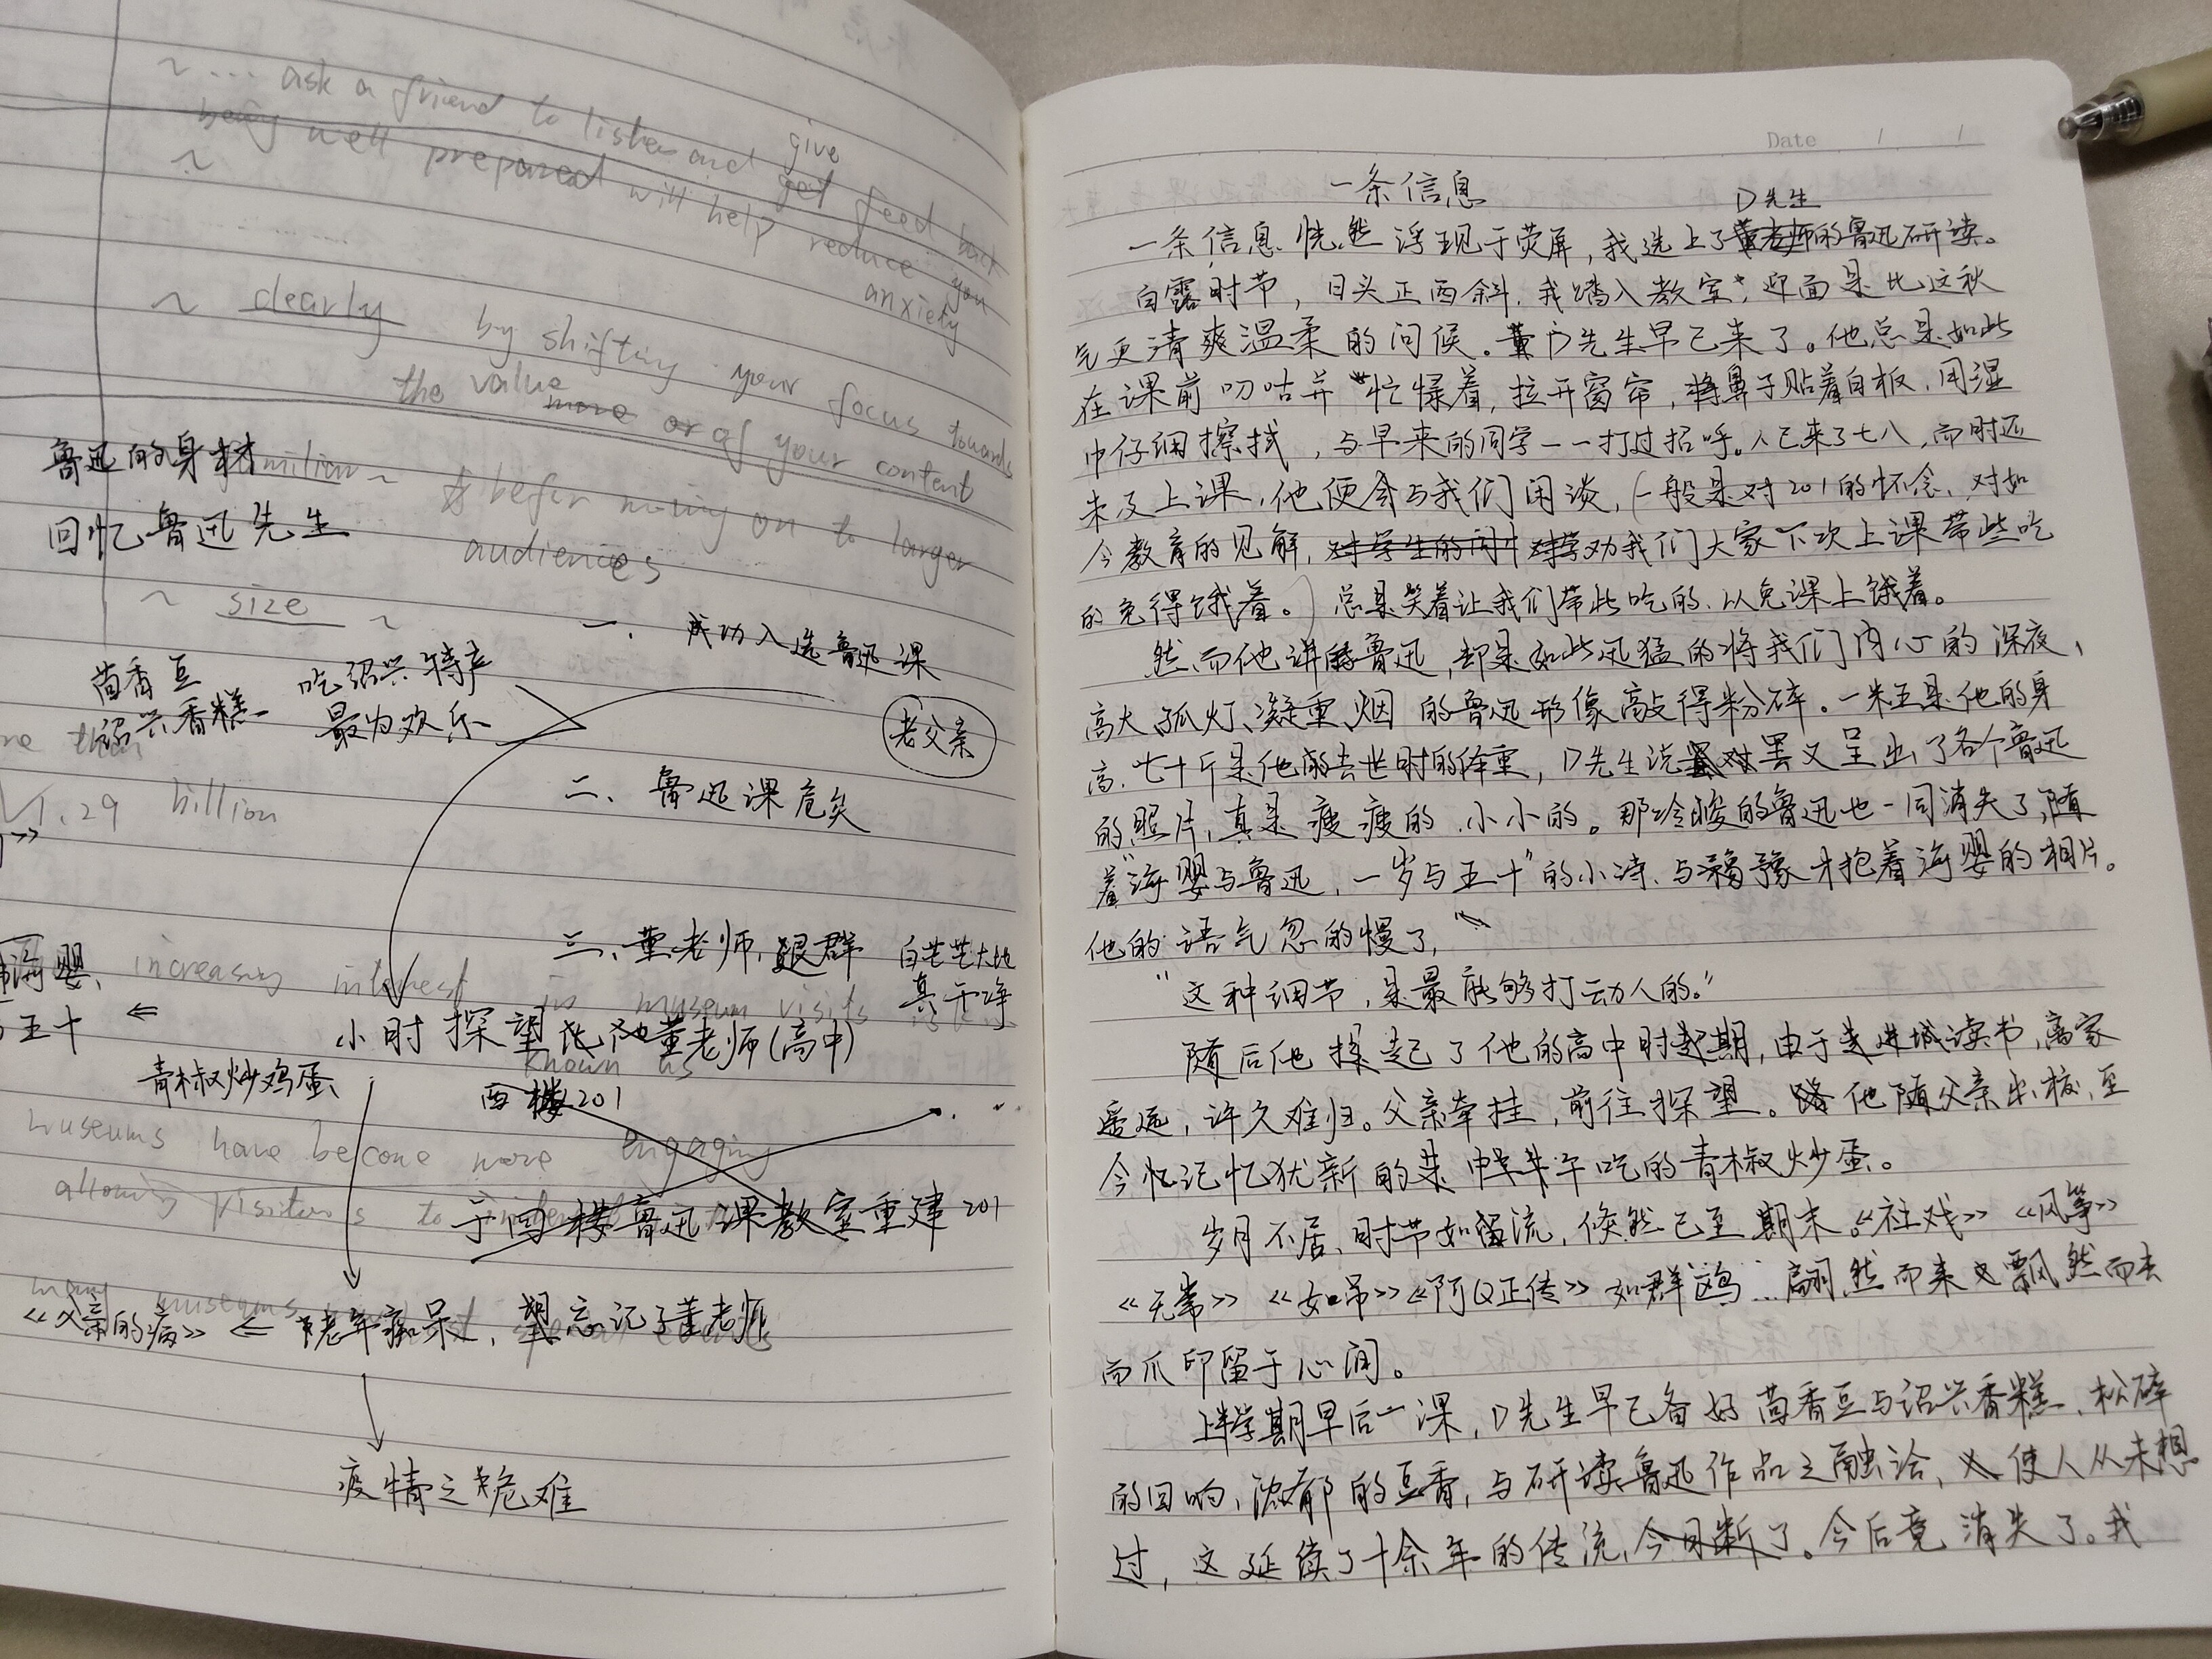 ~ ... ask a friend to listen and get feed back
give
being well prepared will help reduce you
anxiety
~
~ clearly by shifting your focus towards
the value more or of your content
鲁迅的身材
million ~ befor moving on to larger
回忆鲁迅先生
audiences
~ size ~
一、成功入选鲁迅课
茴香豆
绍兴香糕
吃绍兴特产
最为欢乐
老父亲
1.29 billion
二、鲁迅课危矣
三、董老师,退群
白茫茫大地
真干净
海婴
五十
increasing interest in museum visits
小时探望 董老师(高中)
known as
青椒炒鸡蛋
西楼201
museums have become more engaging
allowing visitors to
于西楼鲁迅课教室重建201
many museums
《父亲的病》 老年痴呆,忘记了董老师
疫情之危难
Date / /
一条信息
D先生
一条信息恍然浮现于荧屏,我选上了董老师的鲁迅研读。
白露时节,日头正西斜,我踏入教室,迎面是比这秋
气更清爽温柔的问候。董D先生早已来了。他总是如此
在课前叨咕并忙慌着,拉开窗帘,将鼻子贴着白板,用湿
巾仔细擦拭,与早来的同学一一打过招呼。人已来了七八,而时还
未及上课,他便会与我们闲谈,(一般是对201的怀念、对如
今教育的见解,对学生的 劝我们大家下次上课带些吃
的免得饿着。)总是笑着让我们带些吃的,以免课上饿着。
然而他讲鲁迅,却是如此迅猛的将我们内心的深夜、
高大、孤灯、凝重、烟的鲁迅形像敲得粉碎。一米五是他的身
高,七十斤是他的去世时的体重,D先生说罢又呈出了各个鲁迅
的照片,真是瘦瘦的,小小的。那冷峻的鲁迅也一同消失了,随
着“海婴与鲁迅,一岁与五十”的小诗,与 抱着海婴的相片。
他的语气忽的慢了,
“这种细节,是最能够打动人的。”
随后他 起了他的高中时期,由于进城读书,离家
遥远,许久难归。父亲牵挂,前往探望。他随父亲出校,至
今忆记忆犹新的菜 中午吃的青椒炒蛋。
岁月不居,时节如流,倏然已至期末。《社戏》《风筝》
《无常》《女吊》《阿Q正传》如群鸿 翩然而来又飘然而去
而爪印留于心间。
上学期 后一课,D先生早已备好茴香豆与绍兴香糕,松碎
的回响,浓郁的豆香,与研读鲁迅作品之融洽,使人从未想
过,这延续了十余年的传流,今日断了。今后竟消失了。我